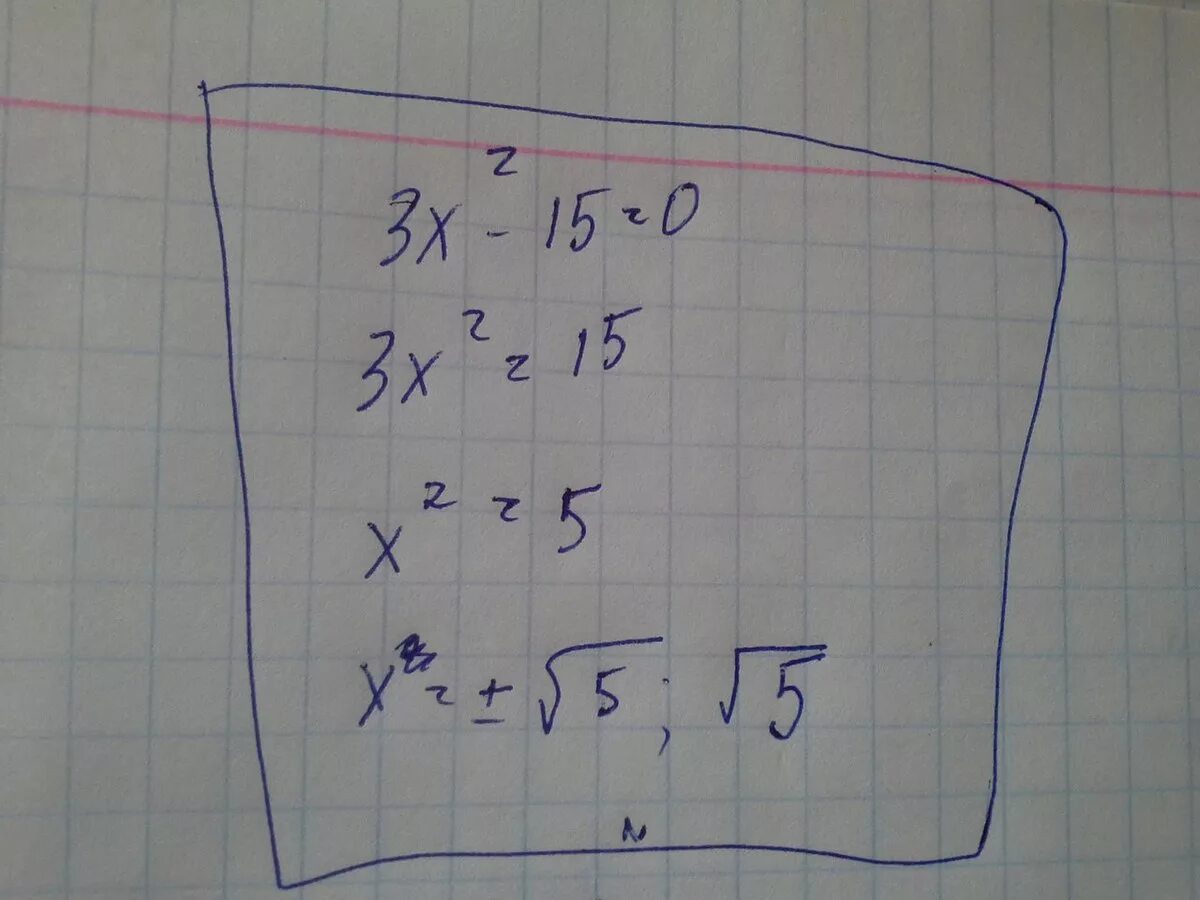 3x² - 15 = 0
3x² = 15
x² = 5
x = ± √5; √5